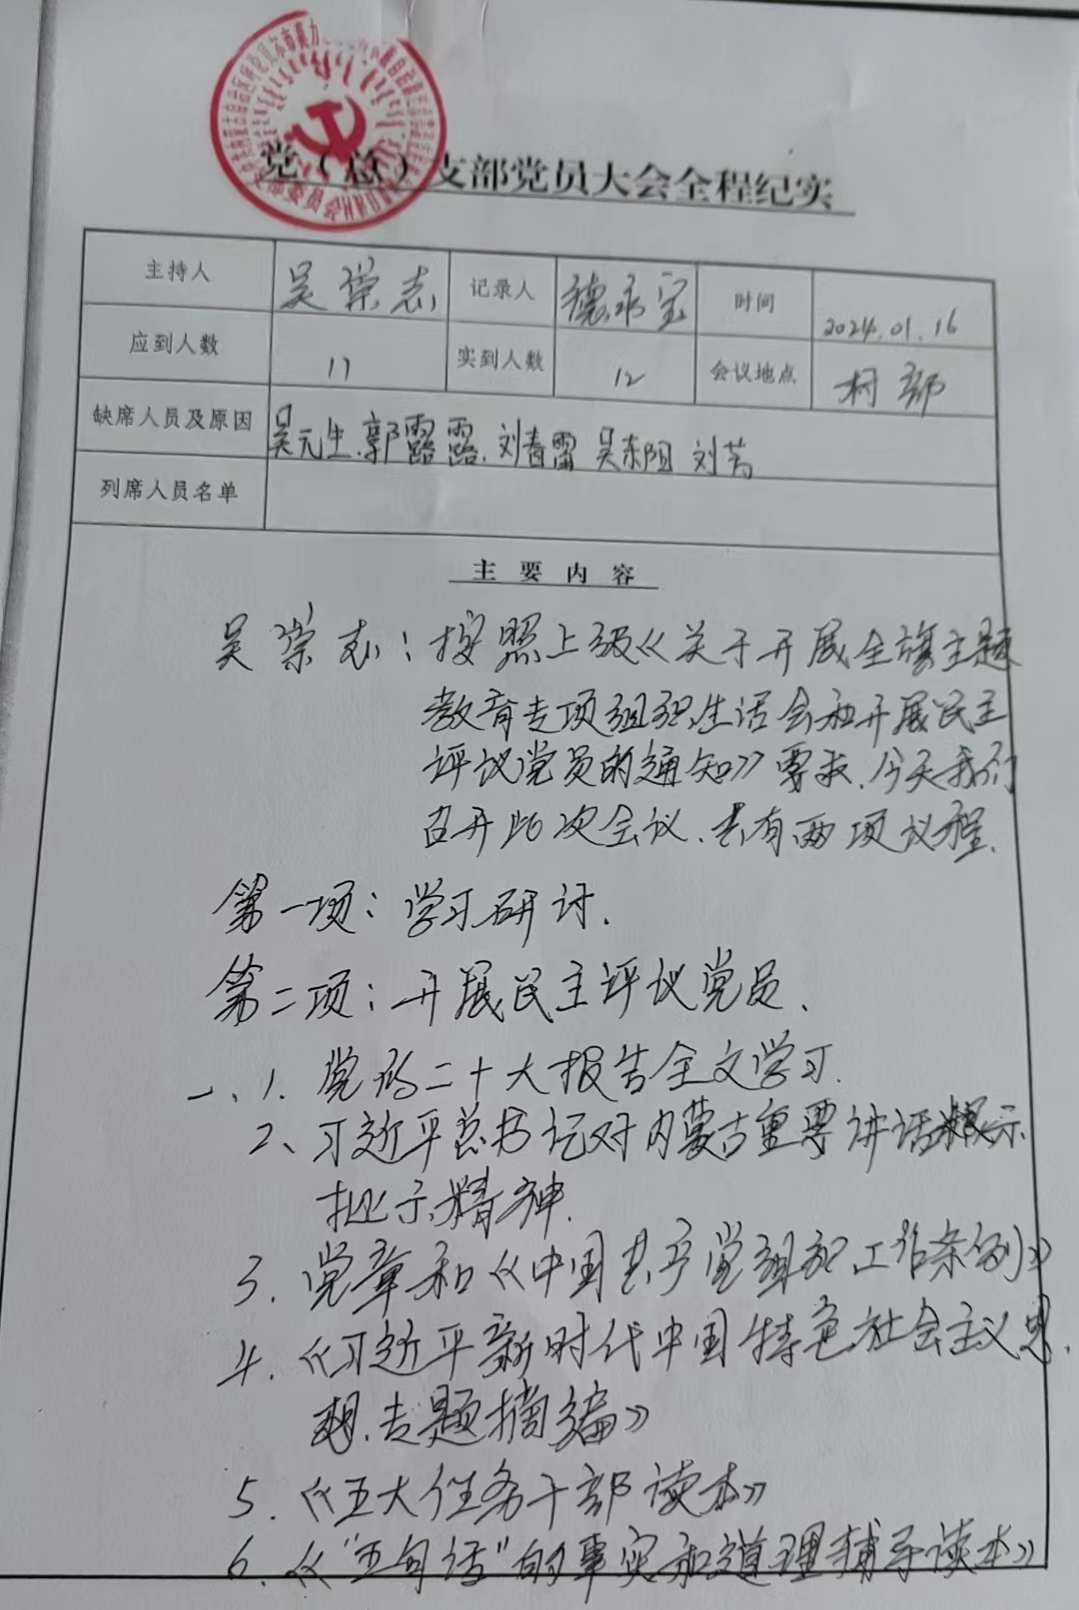 党（总）支部党员大会全程纪实
主持人 吴荣志 记录人 德永宝 时间 2024.01.16
应到人数 17 实到人数 12 会议地点 村部
缺席人员及原因 吴元生.郭露露.刘春雷 吴东阳 刘芳
列席人员名单
主要内容
吴荣志：按照上级《关于开展全旗主题
教育专项组织生活会和开展民主
评议党员的通知》要求.今天我们
召开此次会议.共有两项议程.
第一项：学习研讨.
第二项：开展民主评议党员.
一、1. 党的二十大报告全文学习.
2、习近平总书记对内蒙古重要讲话指示
批示精神.
3. 党章和《中国共产党组织工作条例》
4. 《习近平新时代中国特色社会主义思
想.专题摘编》
5. 《五大任务干部读本》
6. 《“五句话”的事实和道理辅导读本》